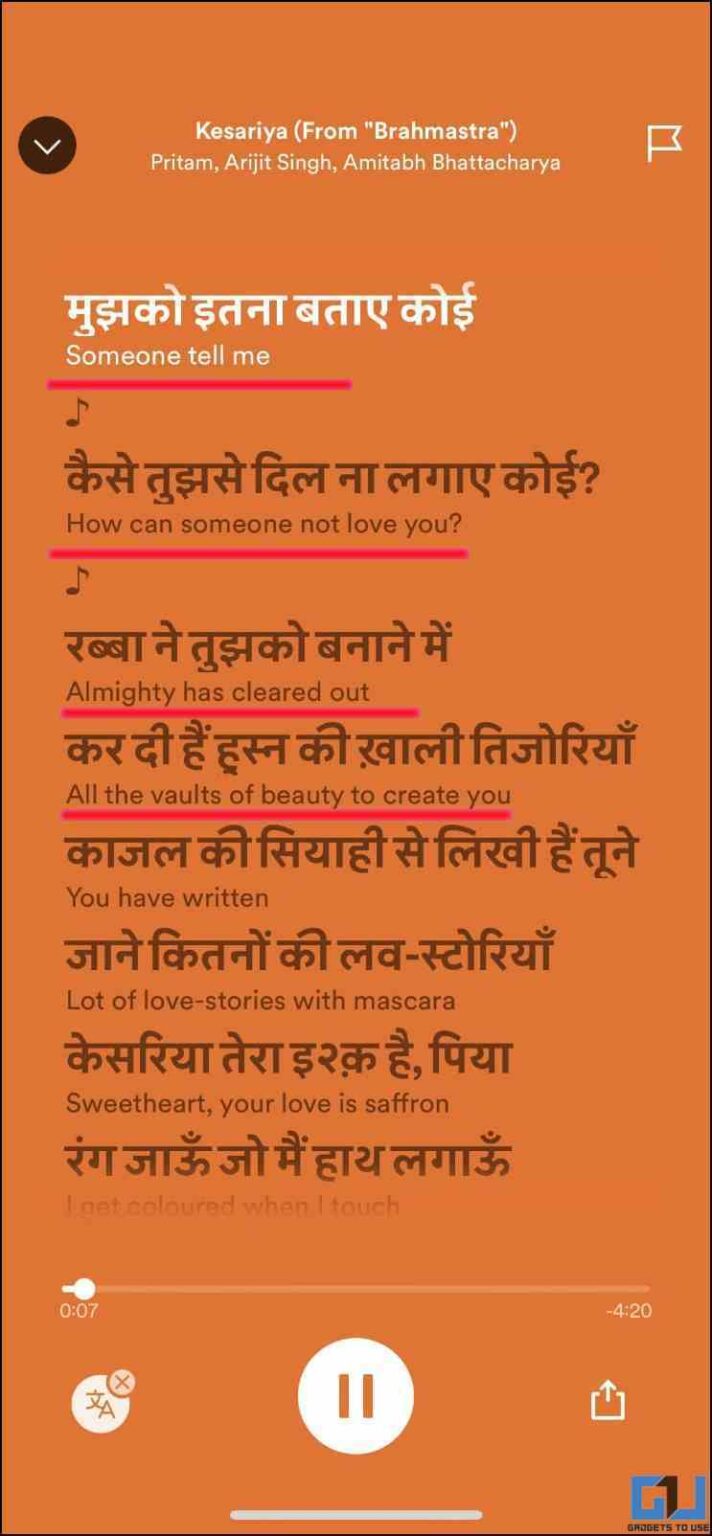 Kesariya (From "Brahmastra")
Pritam, Arijit Singh, Amitabh Bhattacharya
मुझको इतना बताए कोई
Someone tell me
♪
कैसे तुझसे दिल ना लगाए कोई?
How can someone not love you?
♪
रब्बा ने तुझको बनाने में
Almighty has cleared out
कर दी हैं हुस्न की ख़ाली तिजोरियाँ
All the vaults of beauty to create you
काजल की सियाही से लिखी हैं तूने
You have written
जाने कितनों की लव-स्टोरियाँ
Lot of love-stories with mascara
केसरिया तेरा इश्क़ है, पिया
Sweetheart, your love is saffron
रंग जाऊँ जो मैं हाथ लगाऊँ
I get coloured when I touch
0:07
-4:20
文A
GU
GADGETS TO USE